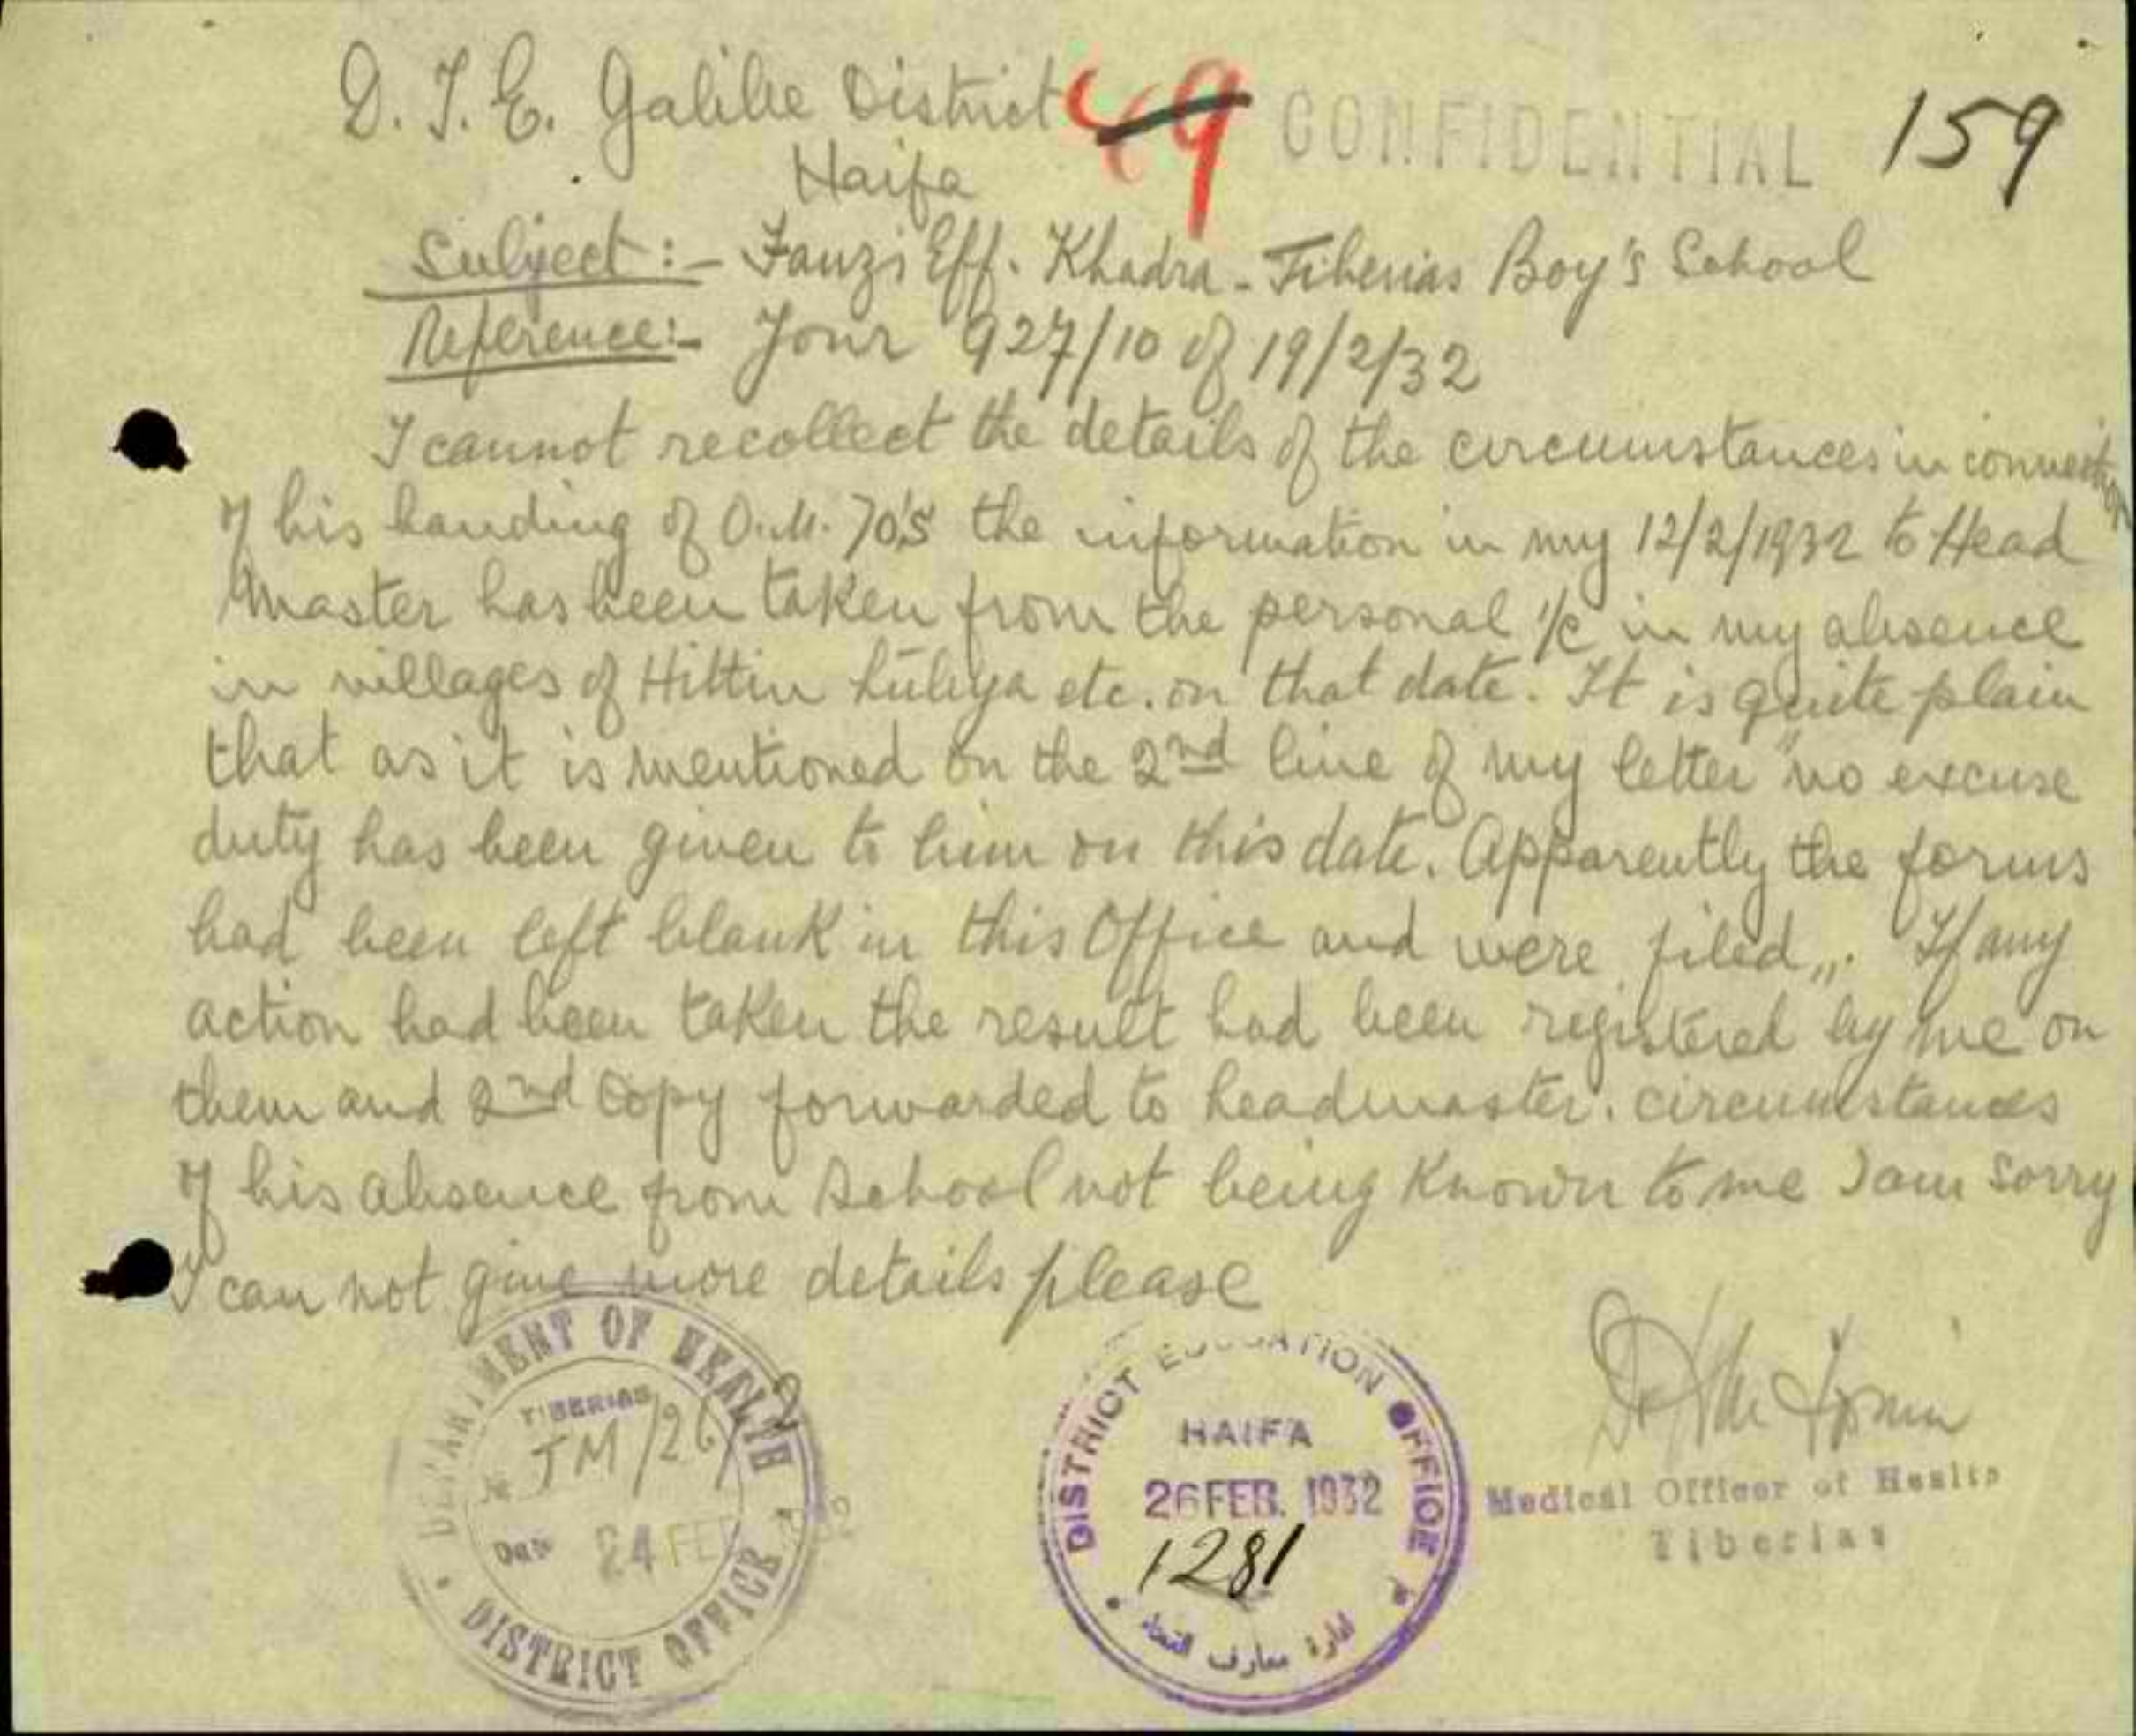 D. I. E. Galilee District 49 CONFIDENTIAL 159
Haifa
Subject:- Fauzi Eff. Khadra - Tiberias Boy's School
Reference:- Your 927/10 of 19/2/32
I cannot recollect the details of the circumstances in connection
of his handing of O.M. 70's the information in my 12/2/1932 to Head
Master has been taken from the personal i/c in my absence
in villages of Hittin Lubya etc. on that date. It is quite plain
that as it is mentioned on the 2nd line of my letter "no excuse
duty has been given to him on this date. Apparently the forms
had been left blank in this Office and were filed,,. If any
action had been taken the result had been registered by me on
them and 2nd copy forwarded to headmaster. circumstances
of his absence from School not being Known to me I am Sorry
I can not give more details please
DEPARTMENT OF HEALTH
TIBERIAS
No TM/26/2
Date 24 FEB 1932
DISTRICT OFFICE
DISTRICT EDUCATION OFFICE
HAIFA
26 FEB. 1932
1281
ادارة معارف
Dr
Medical Officer of Health
Tiberias